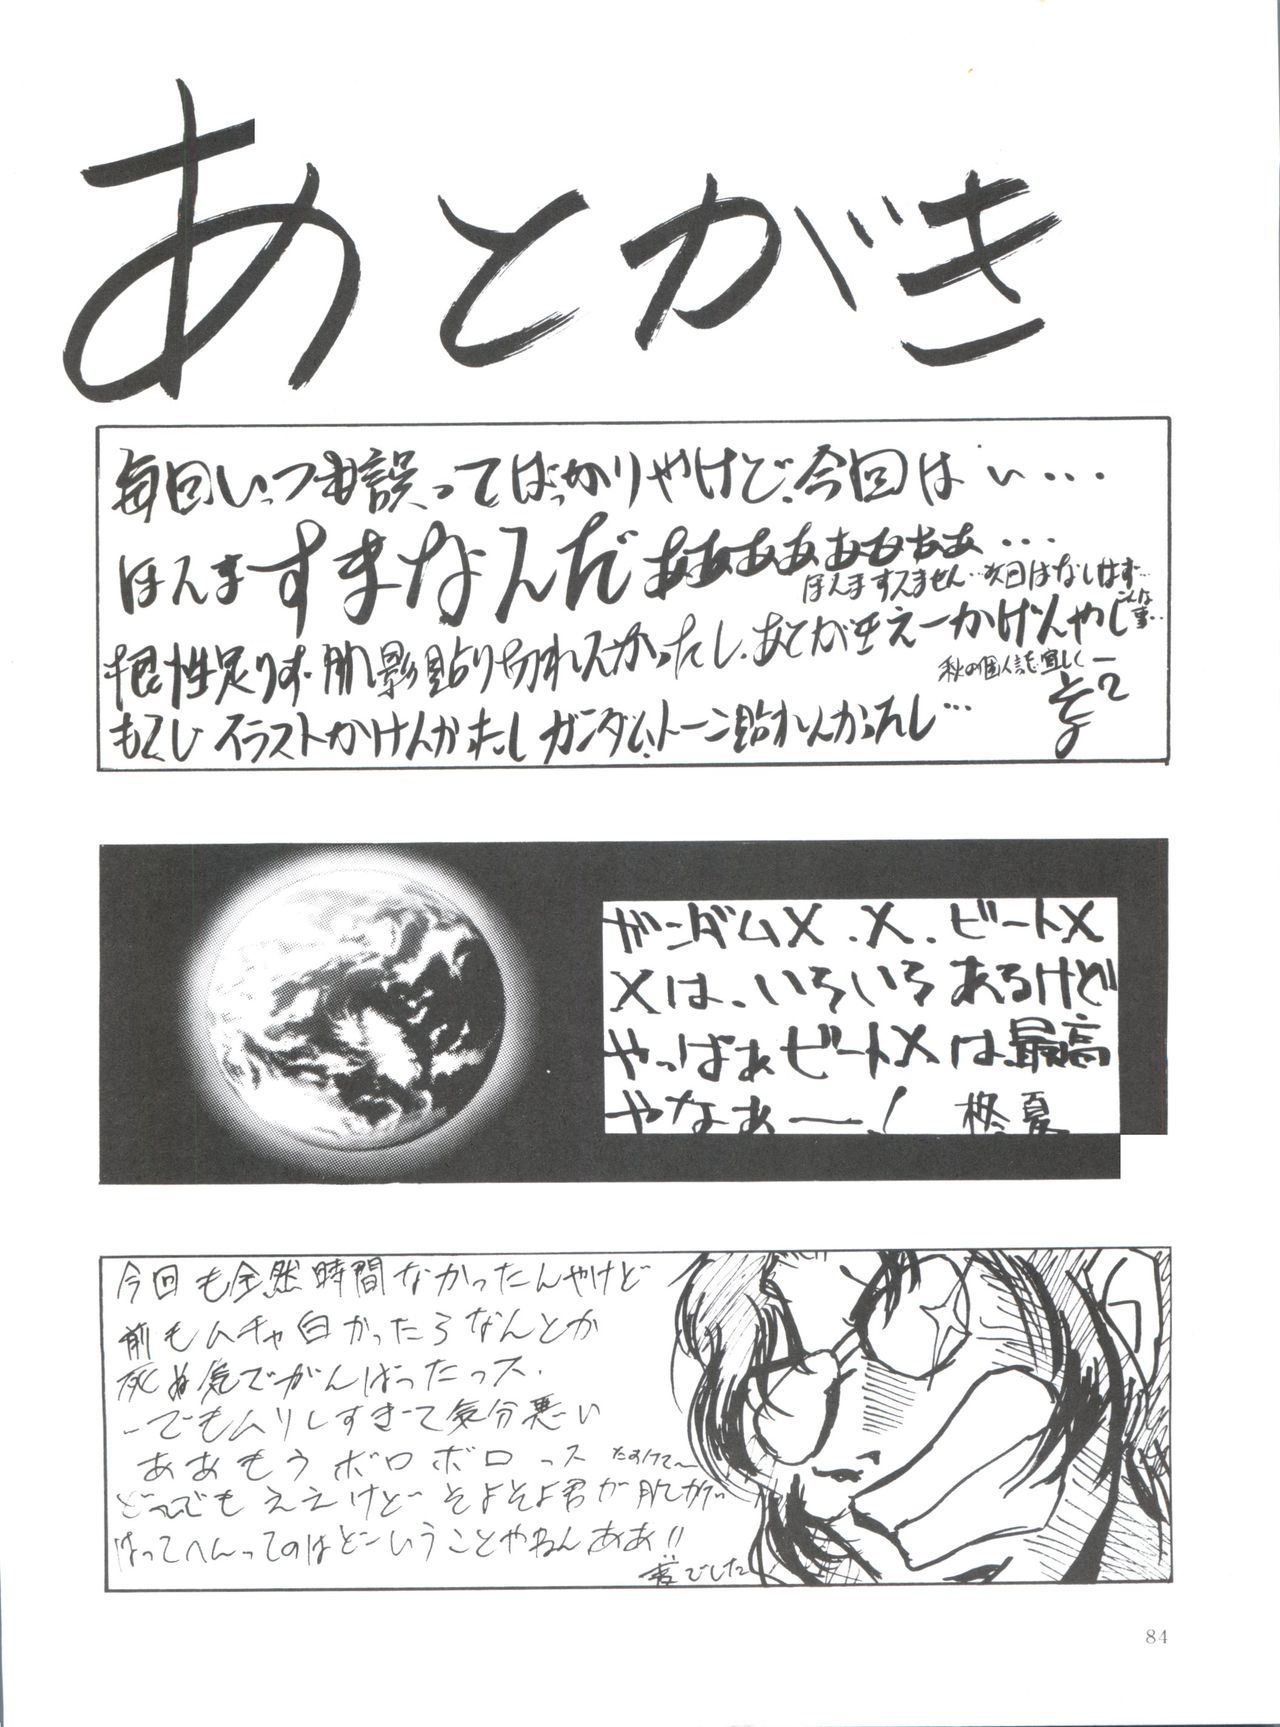 あとがき
毎回いっつも誤ってばっかりやけど、今回はい・・・
ほんますまなんだぁぁぁぁぁぁぁぁ・・・
ほんますみません…次回はなしはず…
こんな事…
根性足りず、肌影貼り切れんかったし、あとがきえーかげんやし
秋の個人誌宜しくー
もくじイラストかけんかったしガンダム、トーン貼れんかったし…
ガンダムX.X.ビートX
Xは、いろいろあるけど
やっぱぁビートXは最高
やなぁー！ 柊夏
今回も全然時間なかったんやけど
前もムチャ白かったろなんとか
死ぬ気でがんばったっス.
ーでもムリしすぎて気分悪い
ああもうボロボロっス たすけてー
どーでもええけどそよそよ君が肌かげ
はってへんってのはどーいうことやねんああ!!
でした
84